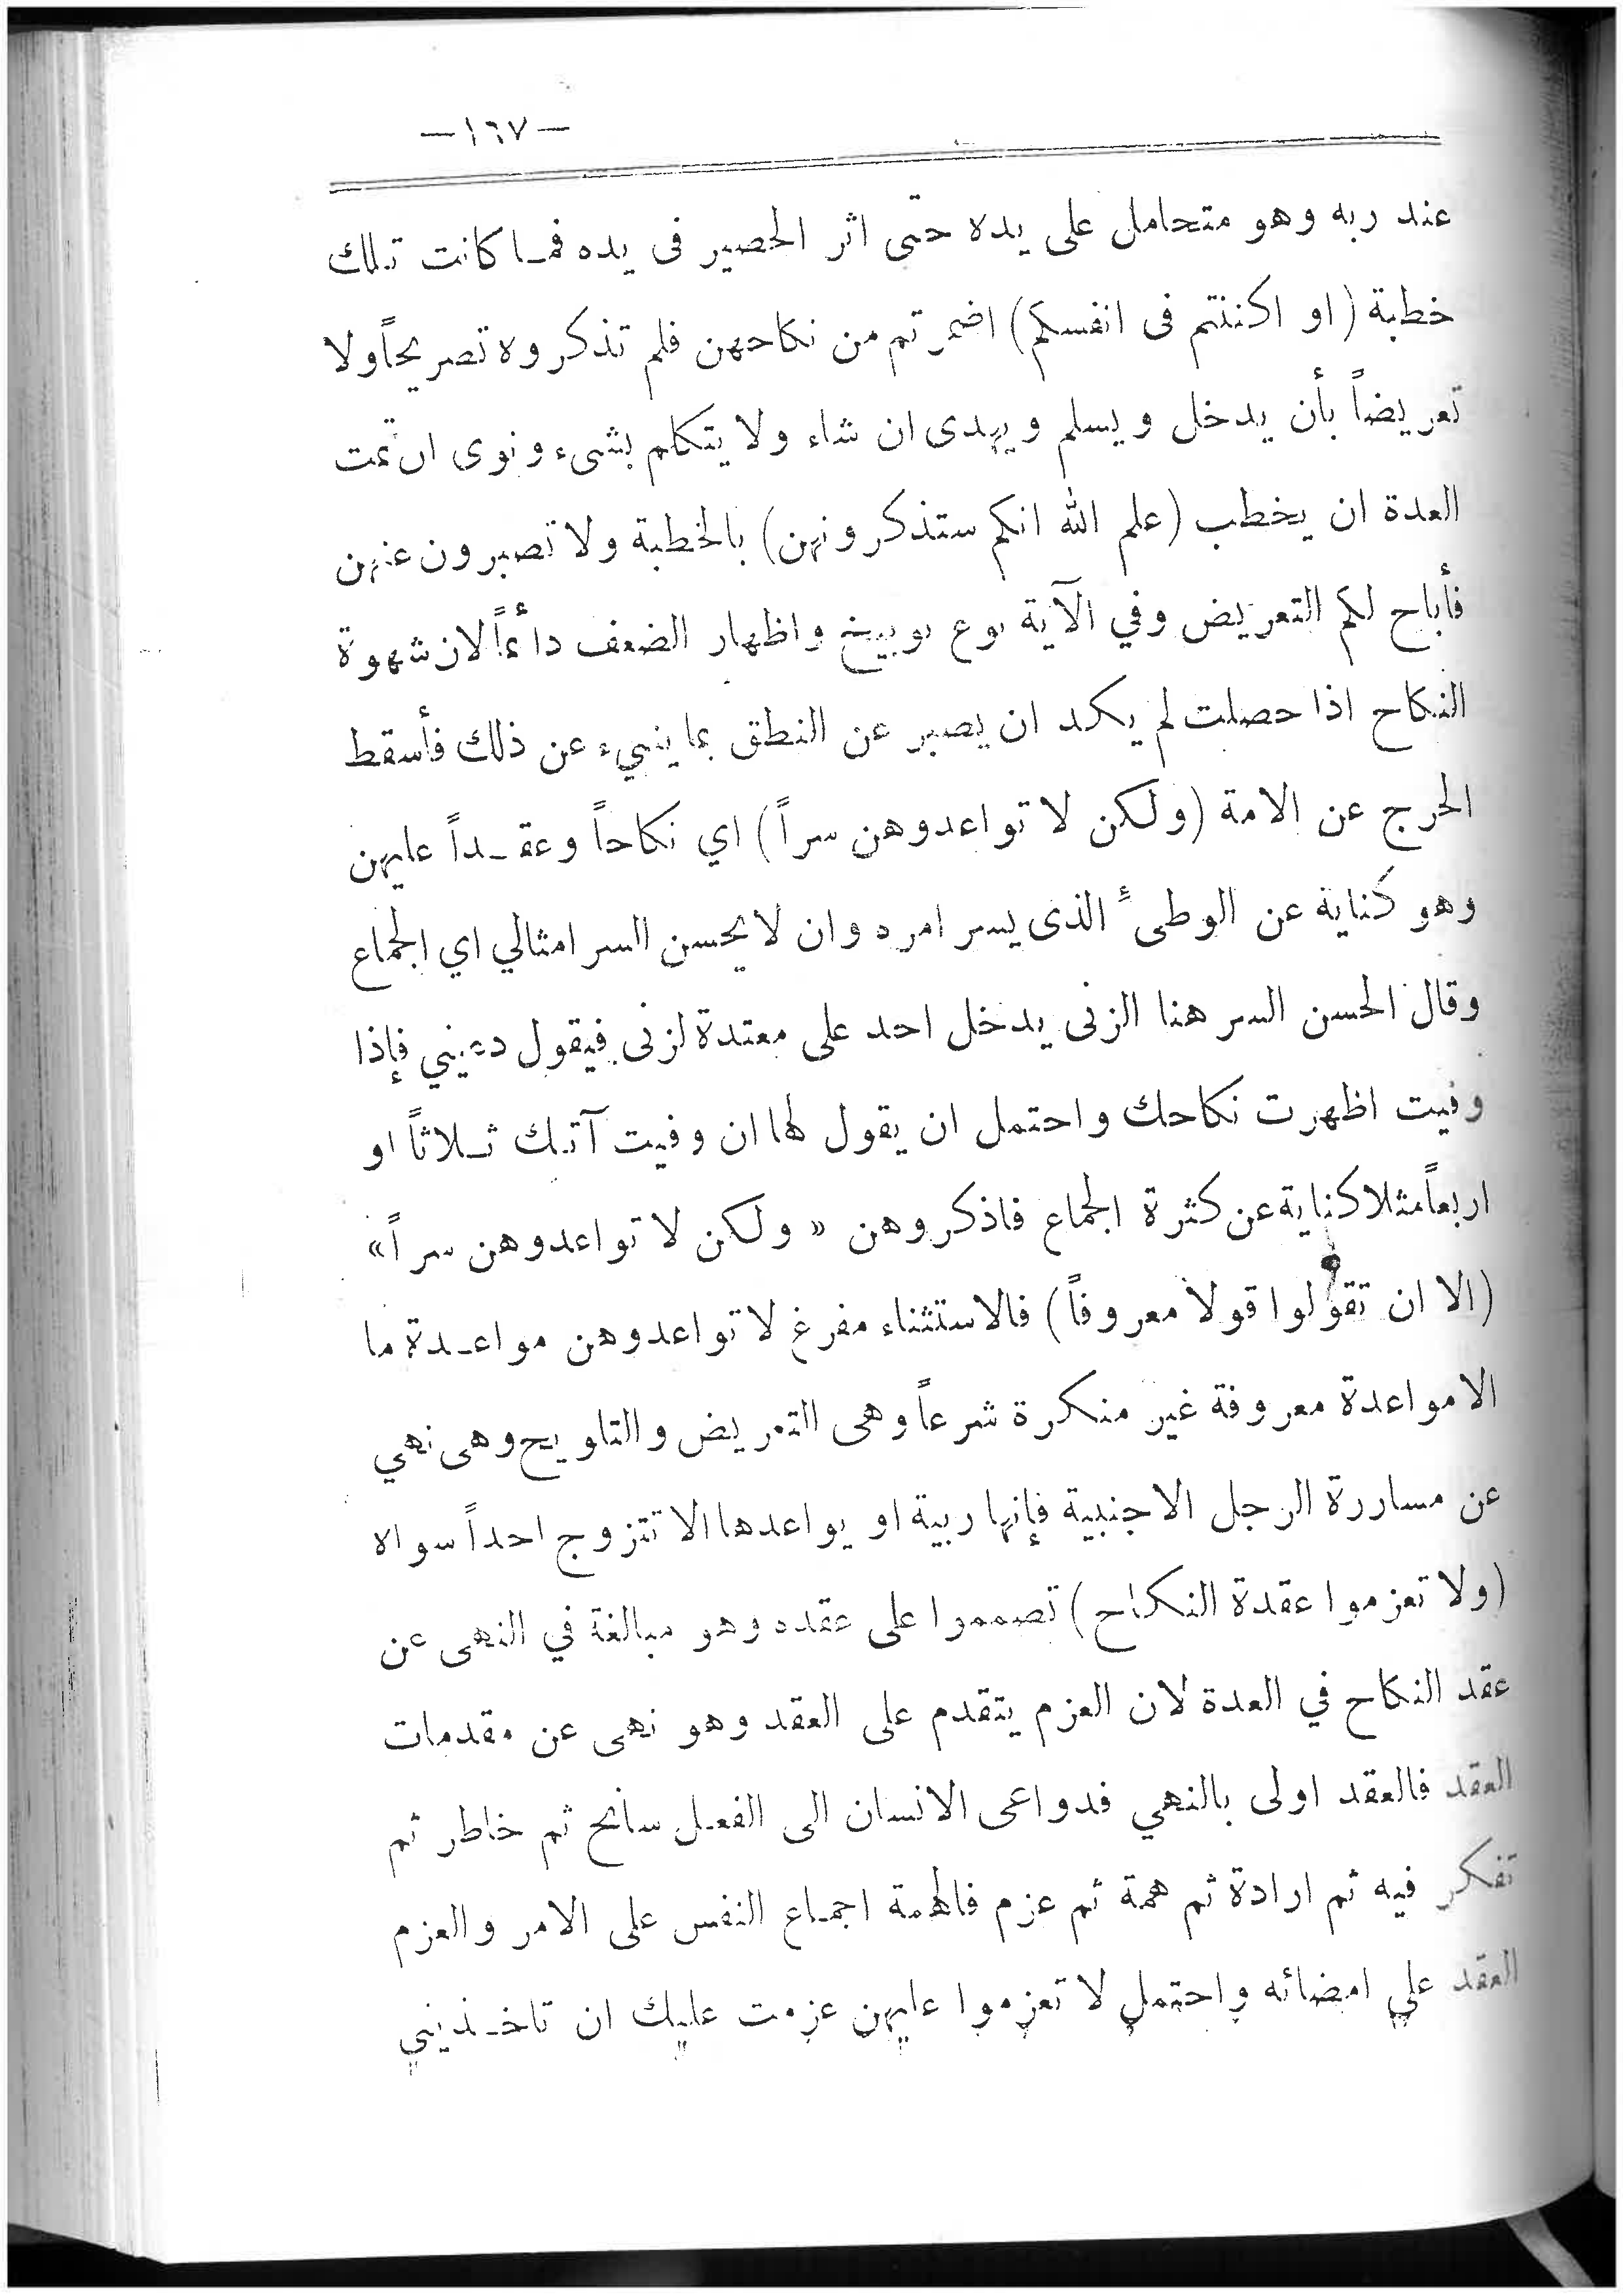 —١٦٧—
عند ربه وهو متحامل على يده حتى اثر الحصير فى يده فمـا كانت تلك
خطبة (او اكننتم فى انفسكم) اضمرتم من نكاحهن فلم تذكروه تصريحاً ولا
تعريضاً بأن يدخل ويسلم ويهدى ان شاء ولا يتكلم بشىء ونوى ان تمت
العدة ان يخطب (علم الله انكم ستذكرونهن) بالخطبة ولا تصبرون عنهن
فأباح لكم التعريض وفي الآية نوع توبيخ واظهار الضعف دائماً لان شهوة
النكاح اذا حصلت لم يكد ان يصبر عن النطق بما ينبىء عن ذلك فأسقط
الحرج عن الامة (ولكن لا تواعدوهن سراً) اي نكاحاً وعقـداً عليهن
وهو كناية عن الوطىء الذى يسر امره وان لا يحسن السر امثالي اي الجماع
وقال الحسن السر هنا الزنى يدخل احد على معتدة لزنى فيقول دعيني فإذا
وفيت اظهرت نكاحك واحتمل ان يقول لها ان وفيت آتك ثـلاثاً او
اربعاً مثلا كناية عن كثرة الجماع فاذكروهن « ولكن لا تواعدوهن سراً»
(الا ان تقولوا قولا معروفاً) فالاستثناء مفرغ لا تواعدوهن مواعـدة ما
الا مواعدة معروفة غير منكرة شرعاً وهى التعريض والتلويح وهى نهي
عن مساررة الرجل الاجنبية فإنها ريبة او يواعدها الا تتزوج احداً سواه
(ولا تعزموا عقدة النكاح) تصمموا على عقده وهو مبالغة في النهى عن
عقد النكاح في العدة لان العزم يتقدم على العقد وهو نهى عن مقدمات
العقد فالعقد اولى بالنهي فدواعى الانسان الى الفعل سانح ثم خاطر ثم
تفكر فيه ثم ارادة ثم همة ثم عزم فالهمة اجماع النفس على الامر والعزم
العقد على امضائه واحتمل لا تعزموا عليهن عزمت عليك ان تاخـذيني